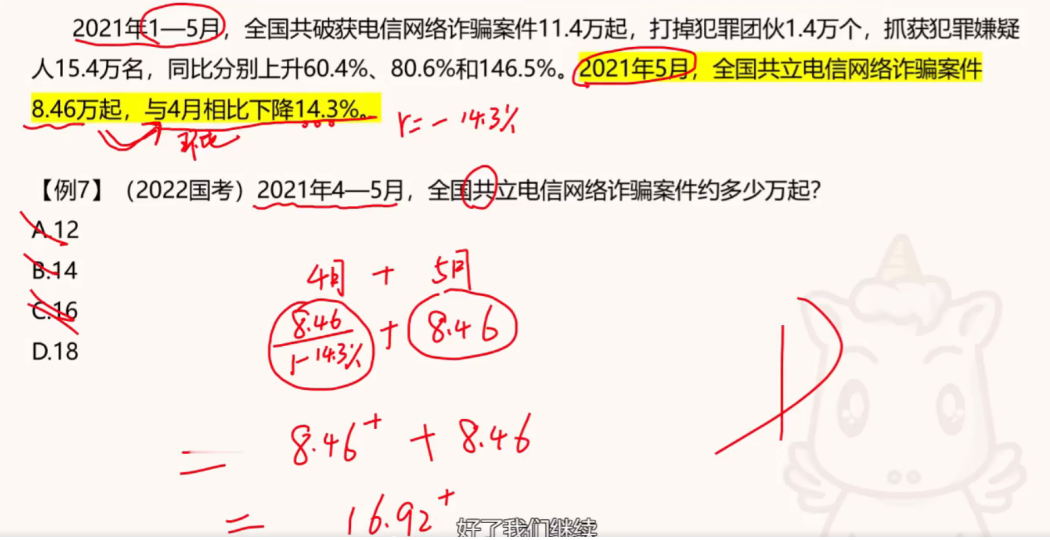 2021年1—5月，全国共破获电信网络诈骗案件11.4万起，打掉犯罪团伙1.4万个，抓获犯罪嫌疑
人15.4万名，同比分别上升60.4%、80.6%和146.5%。2021年5月，全国共立电信网络诈骗案件
8.46万起，与4月相比下降14.3%。
环比
r=-14.3%
【例7】（2022国考）2021年4—5月，全国共立电信网络诈骗案件约多少万起？
A.12
B.14
C.16
D.18
4月 + 5月
8.46/1-14.3% + 8.46
= 8.46⁺ + 8.46
= 16.92⁺
D
好了我们继续